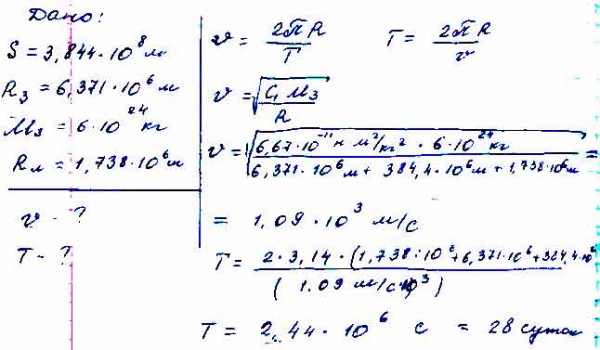 Дано:
S = 3,844·10⁸ м
R₃ = 6,371·10⁶ м
M₃ = 6·10²⁴ кг
Rл = 1,738·10⁶ м
v - ?
T - ?
v = 2πR / T    T = 2πR / v
v = √(G M₃ / R)
v = √(6,67·10⁻¹¹ н м²/кг² · 6·10²⁴ кг / 6,371·10⁶ м + 384,4·10⁶ м + 1,738·10⁶ м) =
= 1,09·10³ м/с
T = 2·3,14·(1,738·10⁶+6,371·10⁶+384,4·10⁶ / (1.09 м/с·10³)
T = 2,44·10⁶ с = 28 суток